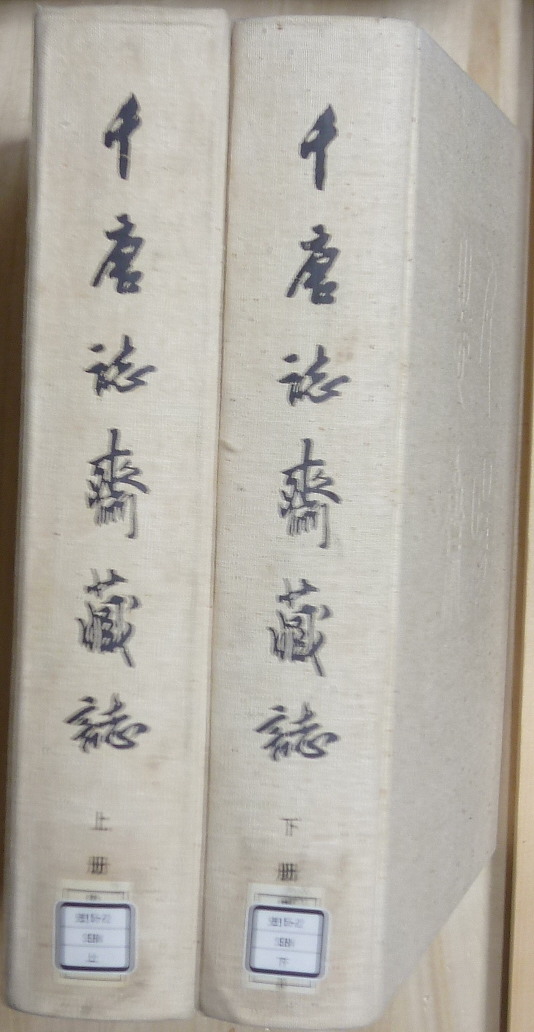 千唐誌齋藏誌
上册
上
千唐誌齋藏誌
下册
下